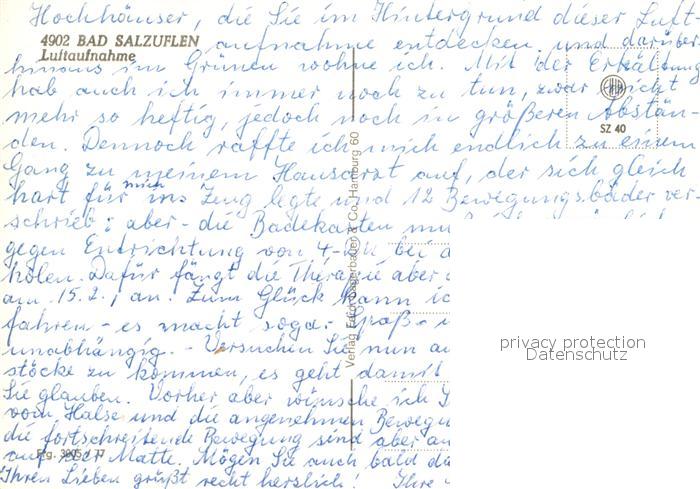 Hochhäuser, die Sie im Hintergrund dieser Luft-
4902 BAD SALZUFLEN
Luftaufnahme
aufnahme entdecken und darüber
hinaus im Grünen wohne ich. Mit der Erkältung
hab auch ich immer noch zu tun, zwar nicht
mehr so heftig, jedoch noch in größeren Abstän-
SZ 40
den. Dennoch raffte ich mich endlich zu einem
Gang zu meinem Hausarzt auf, der sich gleich
hart für mich ins Zeug legte und 12 Bewegungsbäder ver-
schrieb; aber - die Badekarten
gegen Entrichtung von 4- bei
holen. Dafür fängt die Therapie aber
am 15.2. an. Zum Glück kann
fahren - es macht sogar Spaß -
unabhängig. - Versuchen Sie nun
stöcke zu kommen, es geht damit
Sie glauben. Vorher aber wünsche ich
vom Halse und die angenehmen Bewegu
die fortschreitende Bewegung sind aber
auf der Matte. Mögen Sie auch bald
Ihren Lieben grüßt recht herzlich! Ihre
Hamburg 60
privacy protection
Datenschutz